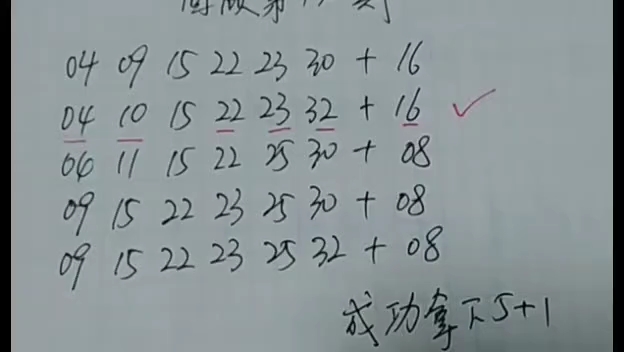 04 09 15 22 23 30 + 16
04 10 15 22 23 32 + 16 ✓
06 11 15 22 25 30 + 08
09 15 22 23 25 30 + 08
09 15 22 23 25 32 + 08
成功拿下5+1